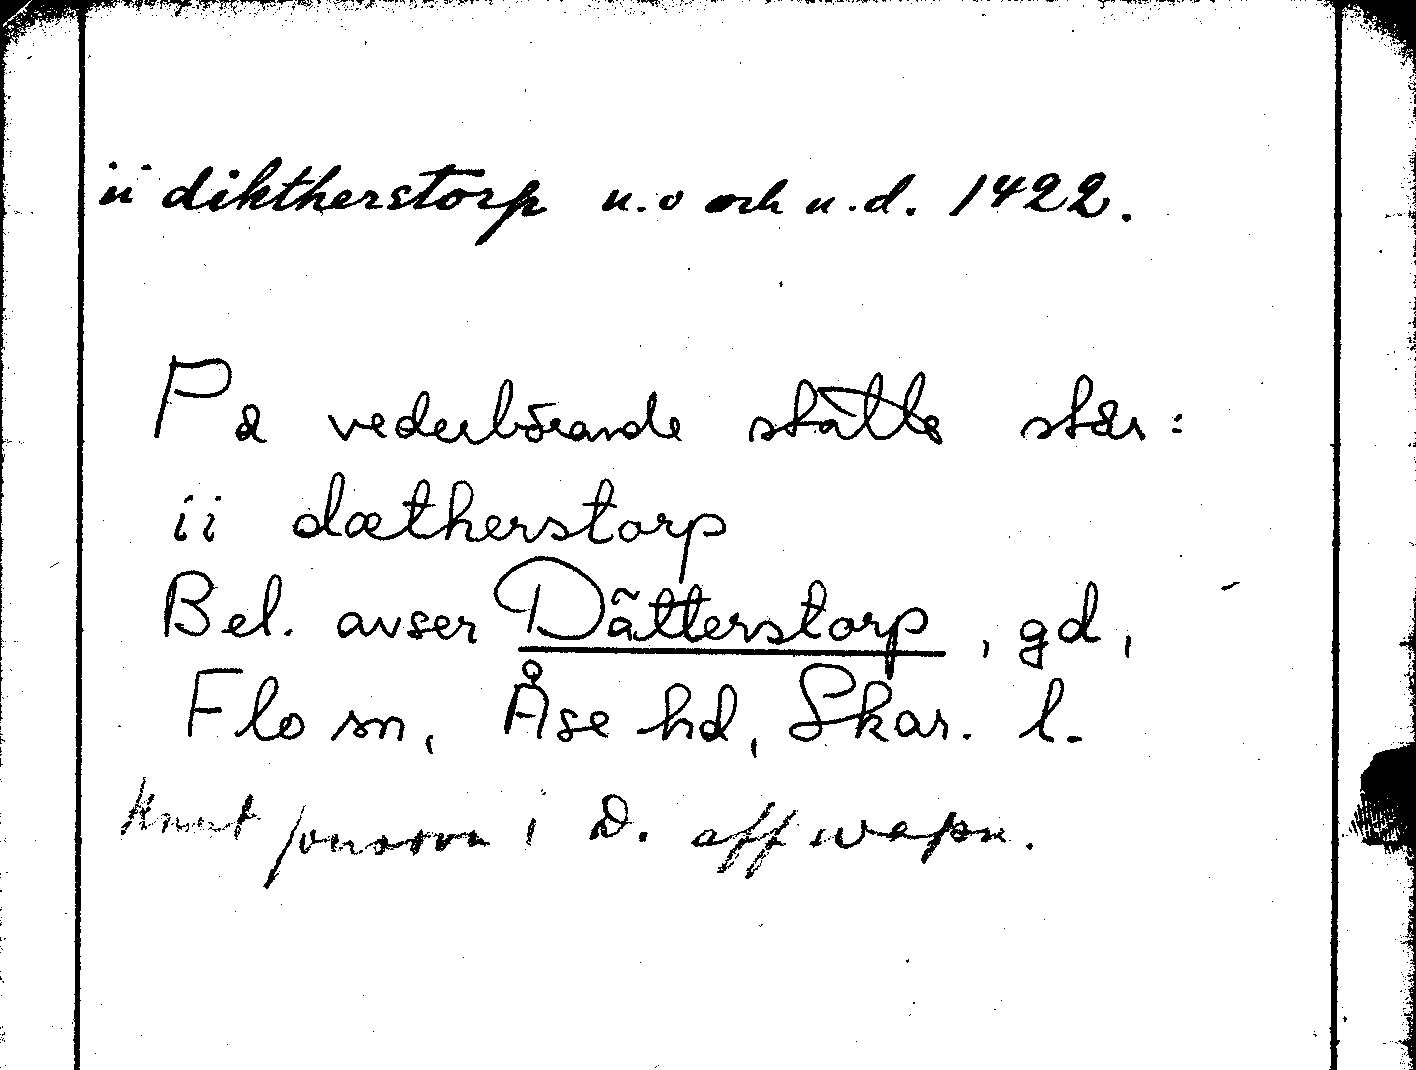 ii diktherstorp u.o och u.d. 1422.
På vederbörande ställe står:
ii dætherstorp
Bel. avser Dätterstorp, gd,
Flo sn, Åse hd, Skar. l.
Knut jonsson i D. aff wapn.